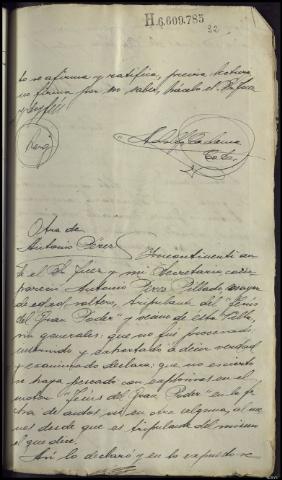 H.6.609.785
32
to se afirma y ratifica, previa lectura
no firma por no saber, hácelo el Sr. Juez
y doy fé
Otra de
Antonio Pérez
Incontinenti an-
te el Sr Juez y mi Secretario, com-
pareció Antonio Pérez Pillado, mayor
de edad, soltero, tripulante del "Jesús
del Gran Poder" y vecino de esta Villa,
sin generales: que no fue procesado,
instruido y exhortado a decir verdad
y examinado declara: que no es cierto
se haya pescado con explosivos en el
motor "Jesús del Gran Poder" en la fe-
cha de autos ni en otra alguna, al me-
nos desde que es tripulante del mismo
el que dice.
Así lo declaró y en lo expuesto se